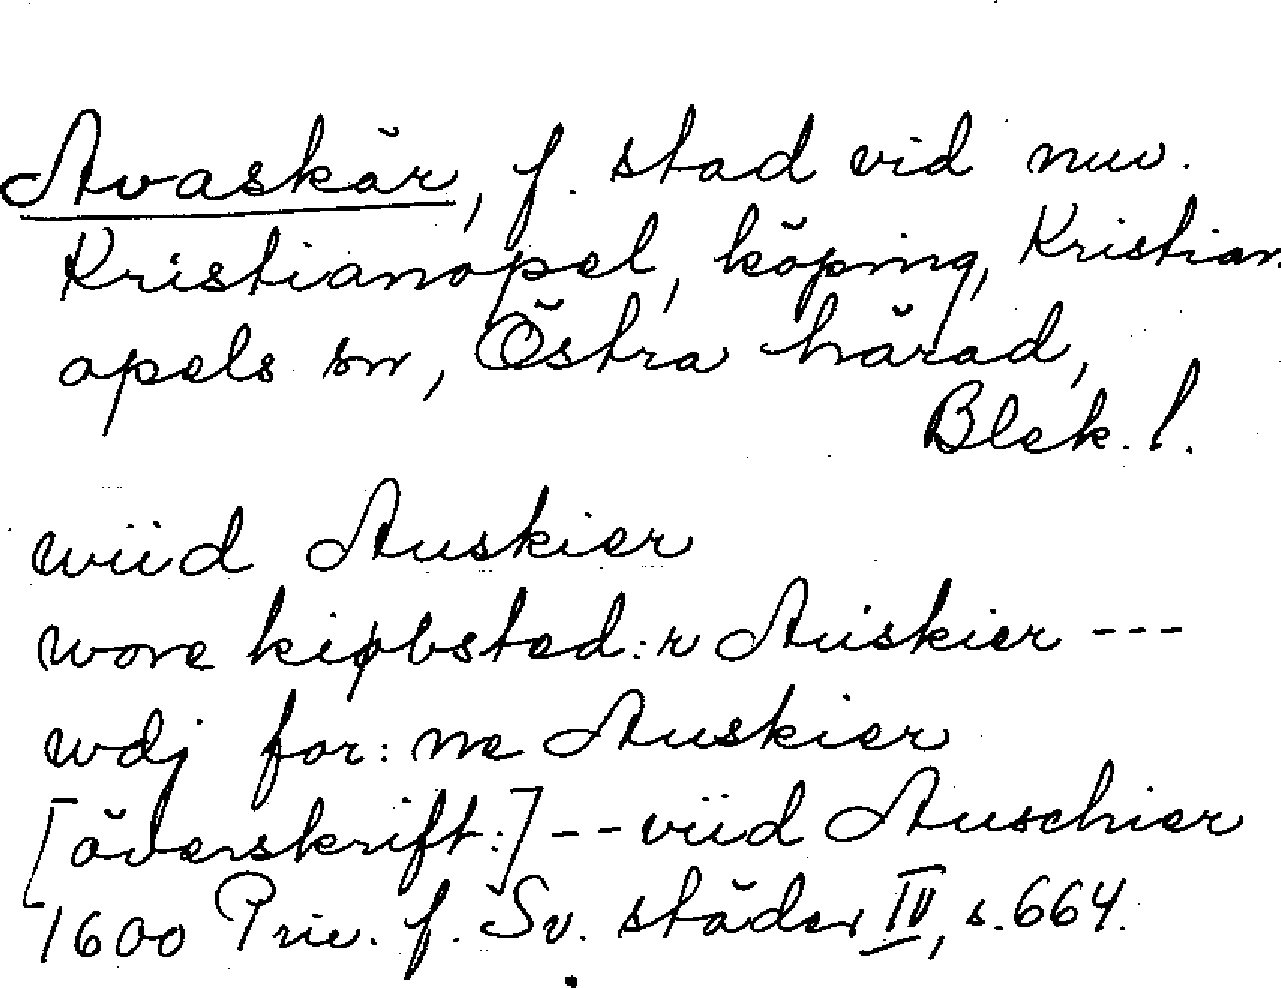 Avaskär, f. stad vid nuv.
Kristianopel, köping, Kristian-
opels sn, Östra härad,
Blek. l.
wiid Auskier
wore kiøbsted:r Auskier ---
wdj for: ne Auskier
[överskrift:] -- viid Auschier
1600 Priv. f. Sv. städer IV, s. 664.